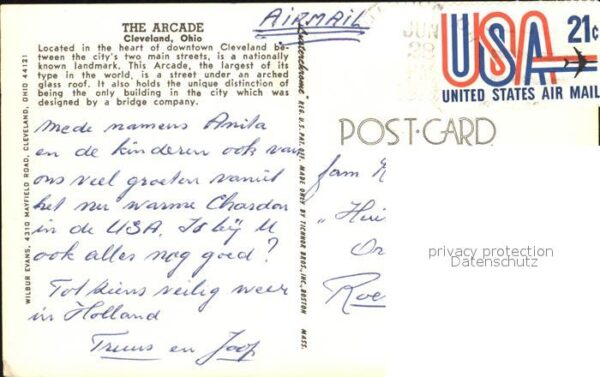 THE ARCADE
Cleveland, Ohio
Located in the heart of downtown Cleveland be-
tween the city's two main streets, is a nationally
known landmark. This Arcade, the largest of its
type in the world, is a street under an arched
glass roof. It also holds the unique distinction of
being the only building in the city which was
designed by a bridge company.
AIRMAIL
JUN
28
USA 21c
UNITED STATES AIR MAIL
POST-CARD
Mede namens Anita
en de kinderen ook van
ons veel groeten vanuit
het nu warme Chardon
in de USA. Is bij U
ook alles nog goed?
Tot ziens veilig weer
in Holland
Truus en Joop
fam
Roe
privacy protection
Datenschutz
WILBUR EVANS, 4310 MAYFIELD ROAD, CLEVELAND, OHIO 44121
"Lusterchrome" REG. U.S. PAT. OFF. MADE ONLY BY TICHNOR BROS., INC., BOSTON MASS.